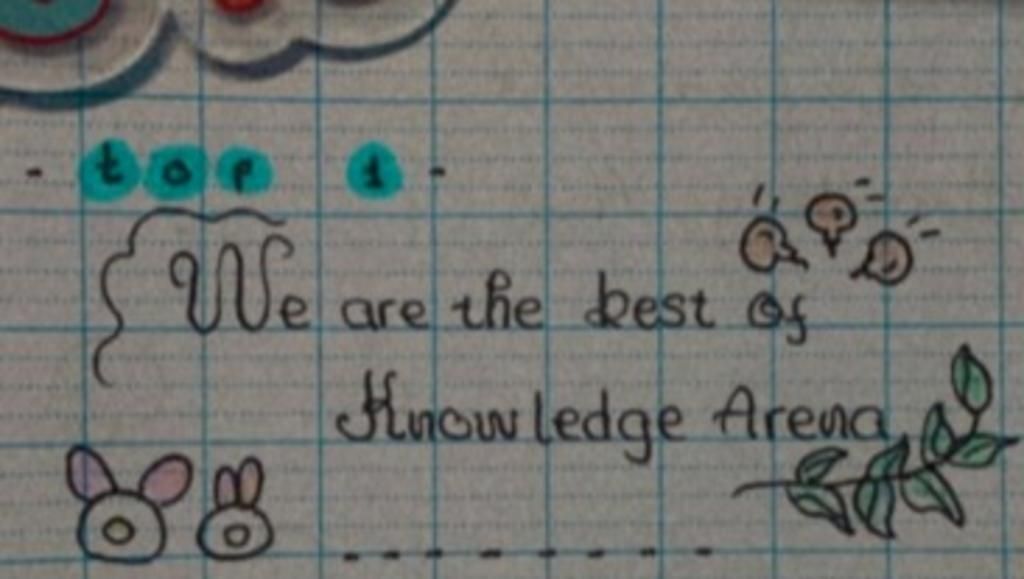 - top 1 -
We are the best of
Knowledge Arena